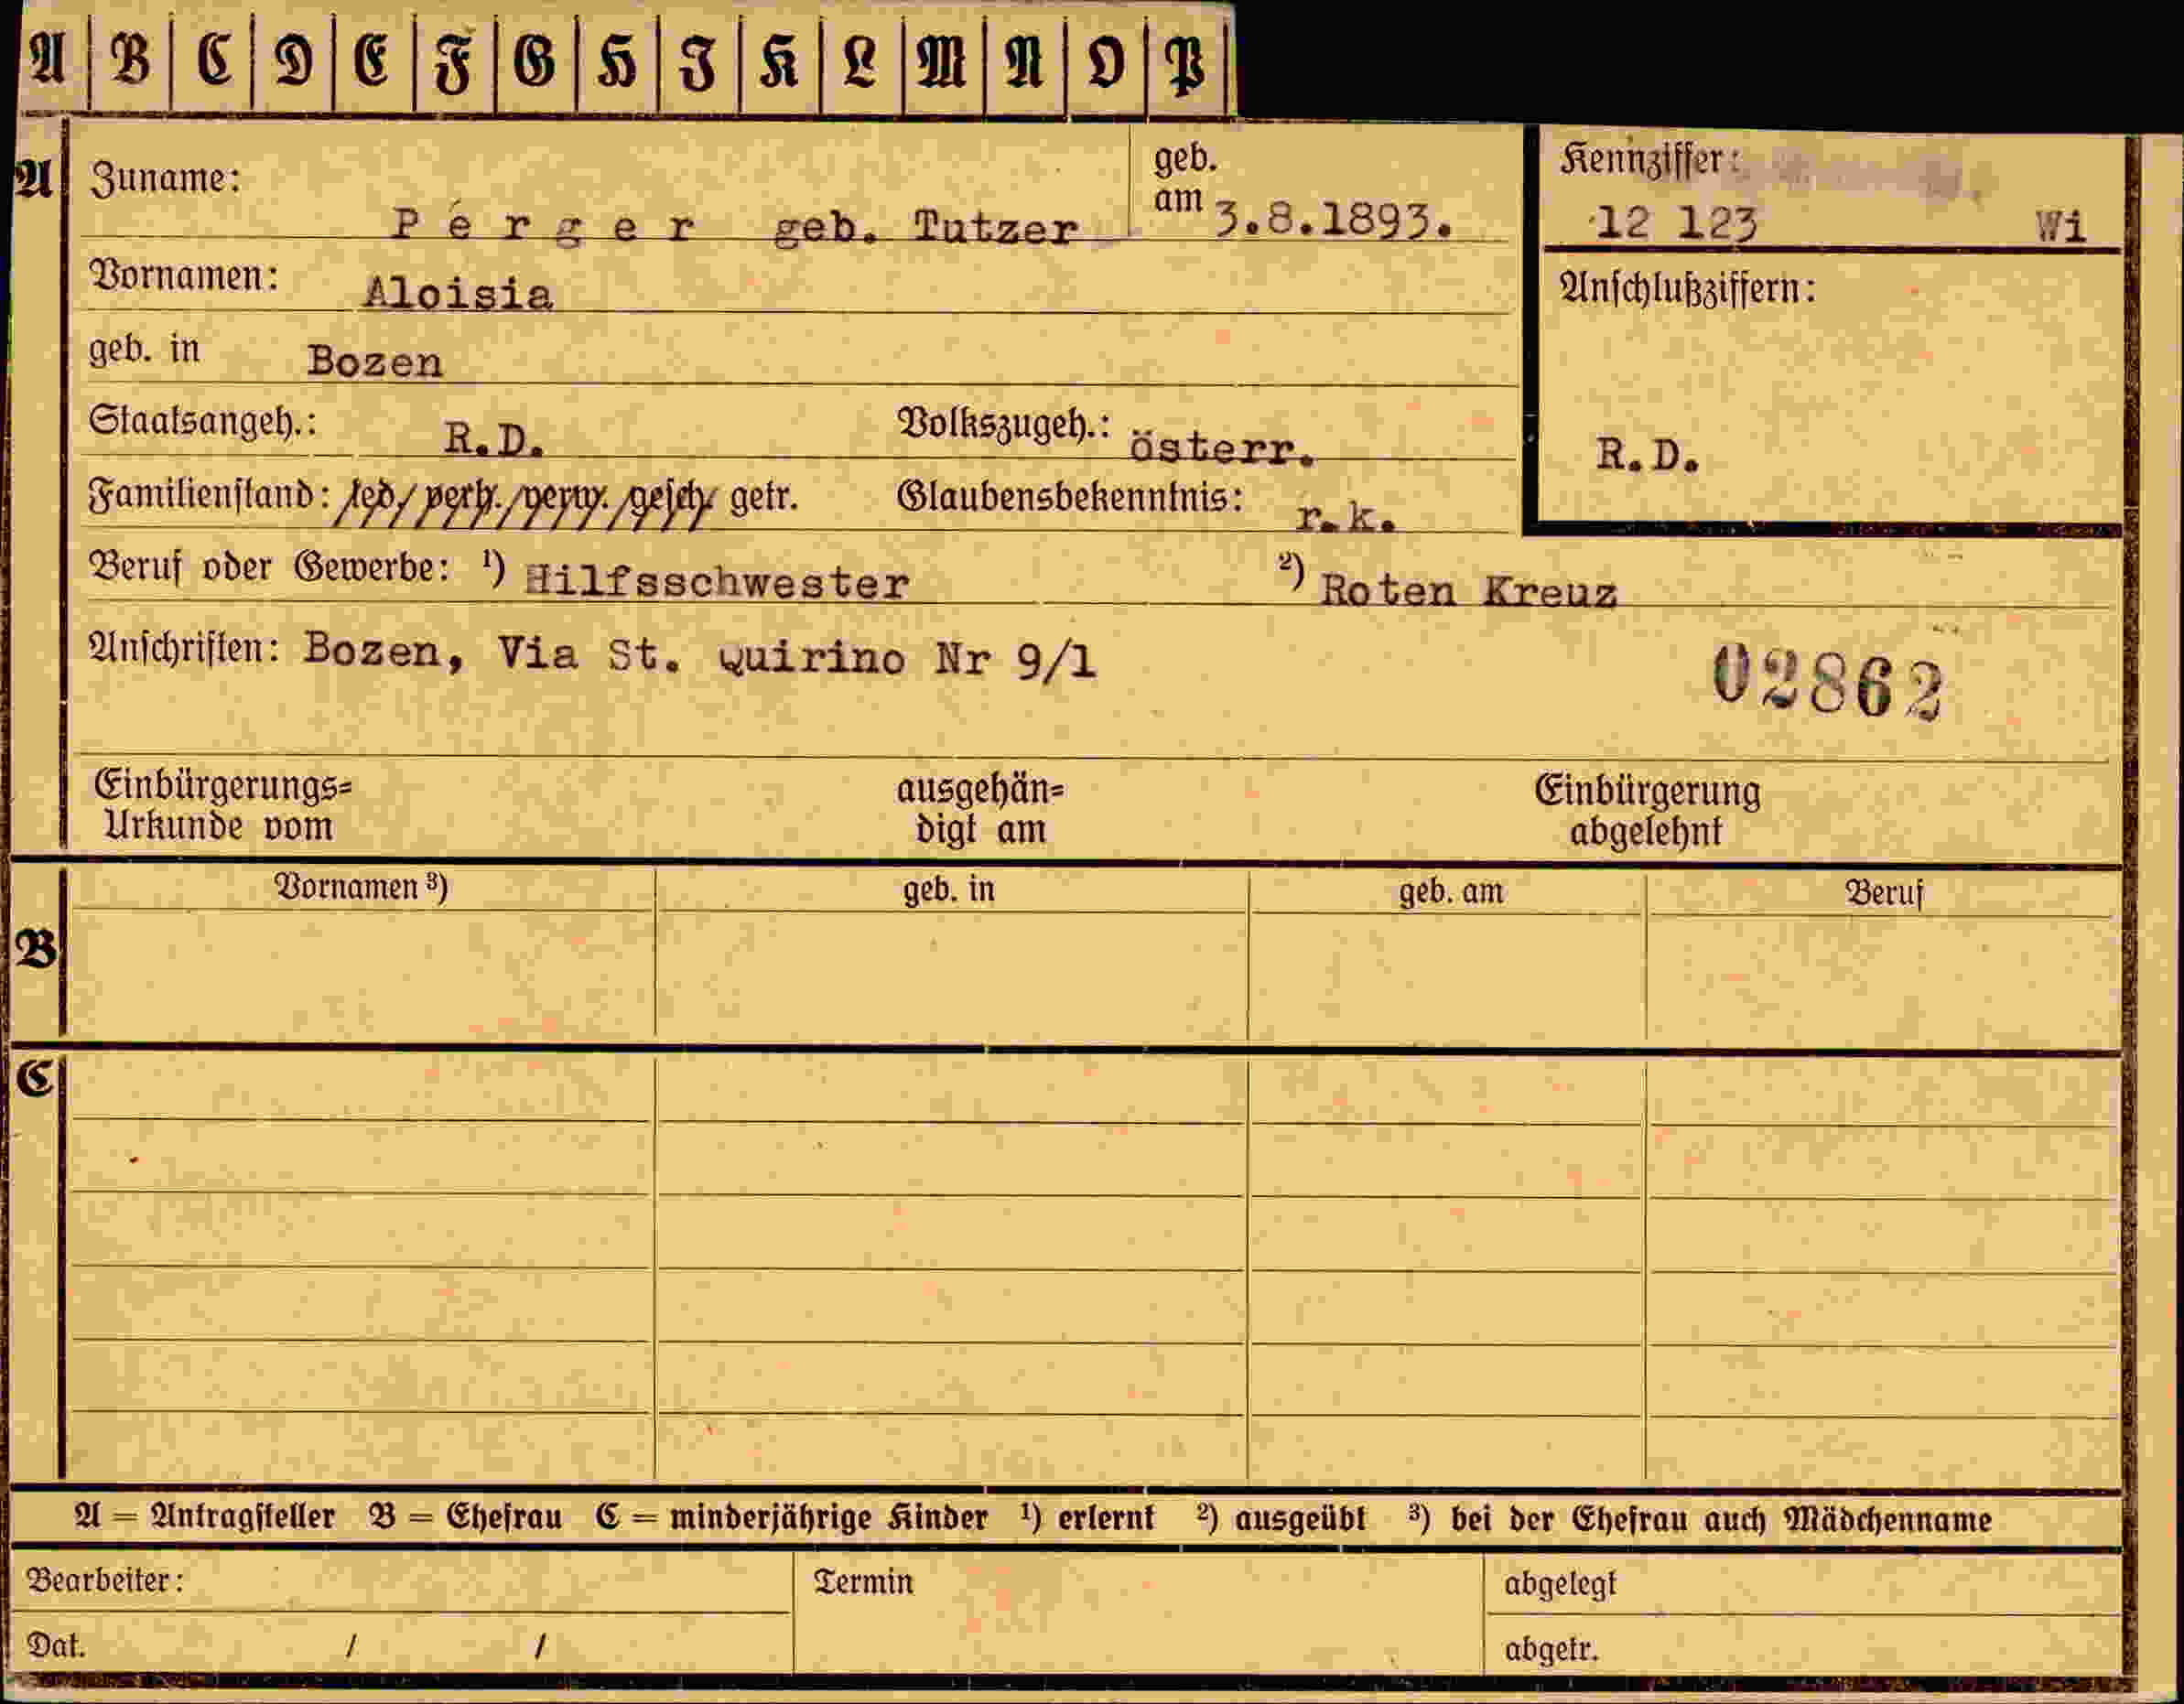 A B C D E F G H I K L M N O P
A Zuname: Perger geb. Tutzer geb. am 3.8.1893. Kennziffer: 12 123 Wi
Vornamen: Aloisia Anschlußziffern:
geb. in Bozen
Staatsangeh.: R.D. Volkszugeh.: österr. R.D.
Familienstand: led./verh./verw./gesch./getr. Glaubensbekenntnis: r.k.
Beruf oder Gewerbe: ¹) Hilfsschwester ²) Roten Kreuz
Anschriften: Bozen, Via St. Quirino Nr 9/1
02862
Einbürgerungs= ausgehän= Einbürgerung
Urkunde vom digt am abgelehnt
Vornamen ³) geb. in geb. am Beruf
B
C
A = Antragsteller B = Ehefrau C = minderjährige Kinder ¹) erlernt ²) ausgeübt ³) bei der Ehefrau auch Mädchenname
Bearbeiter: Termin abgelegt
Dat. / / abgetr.